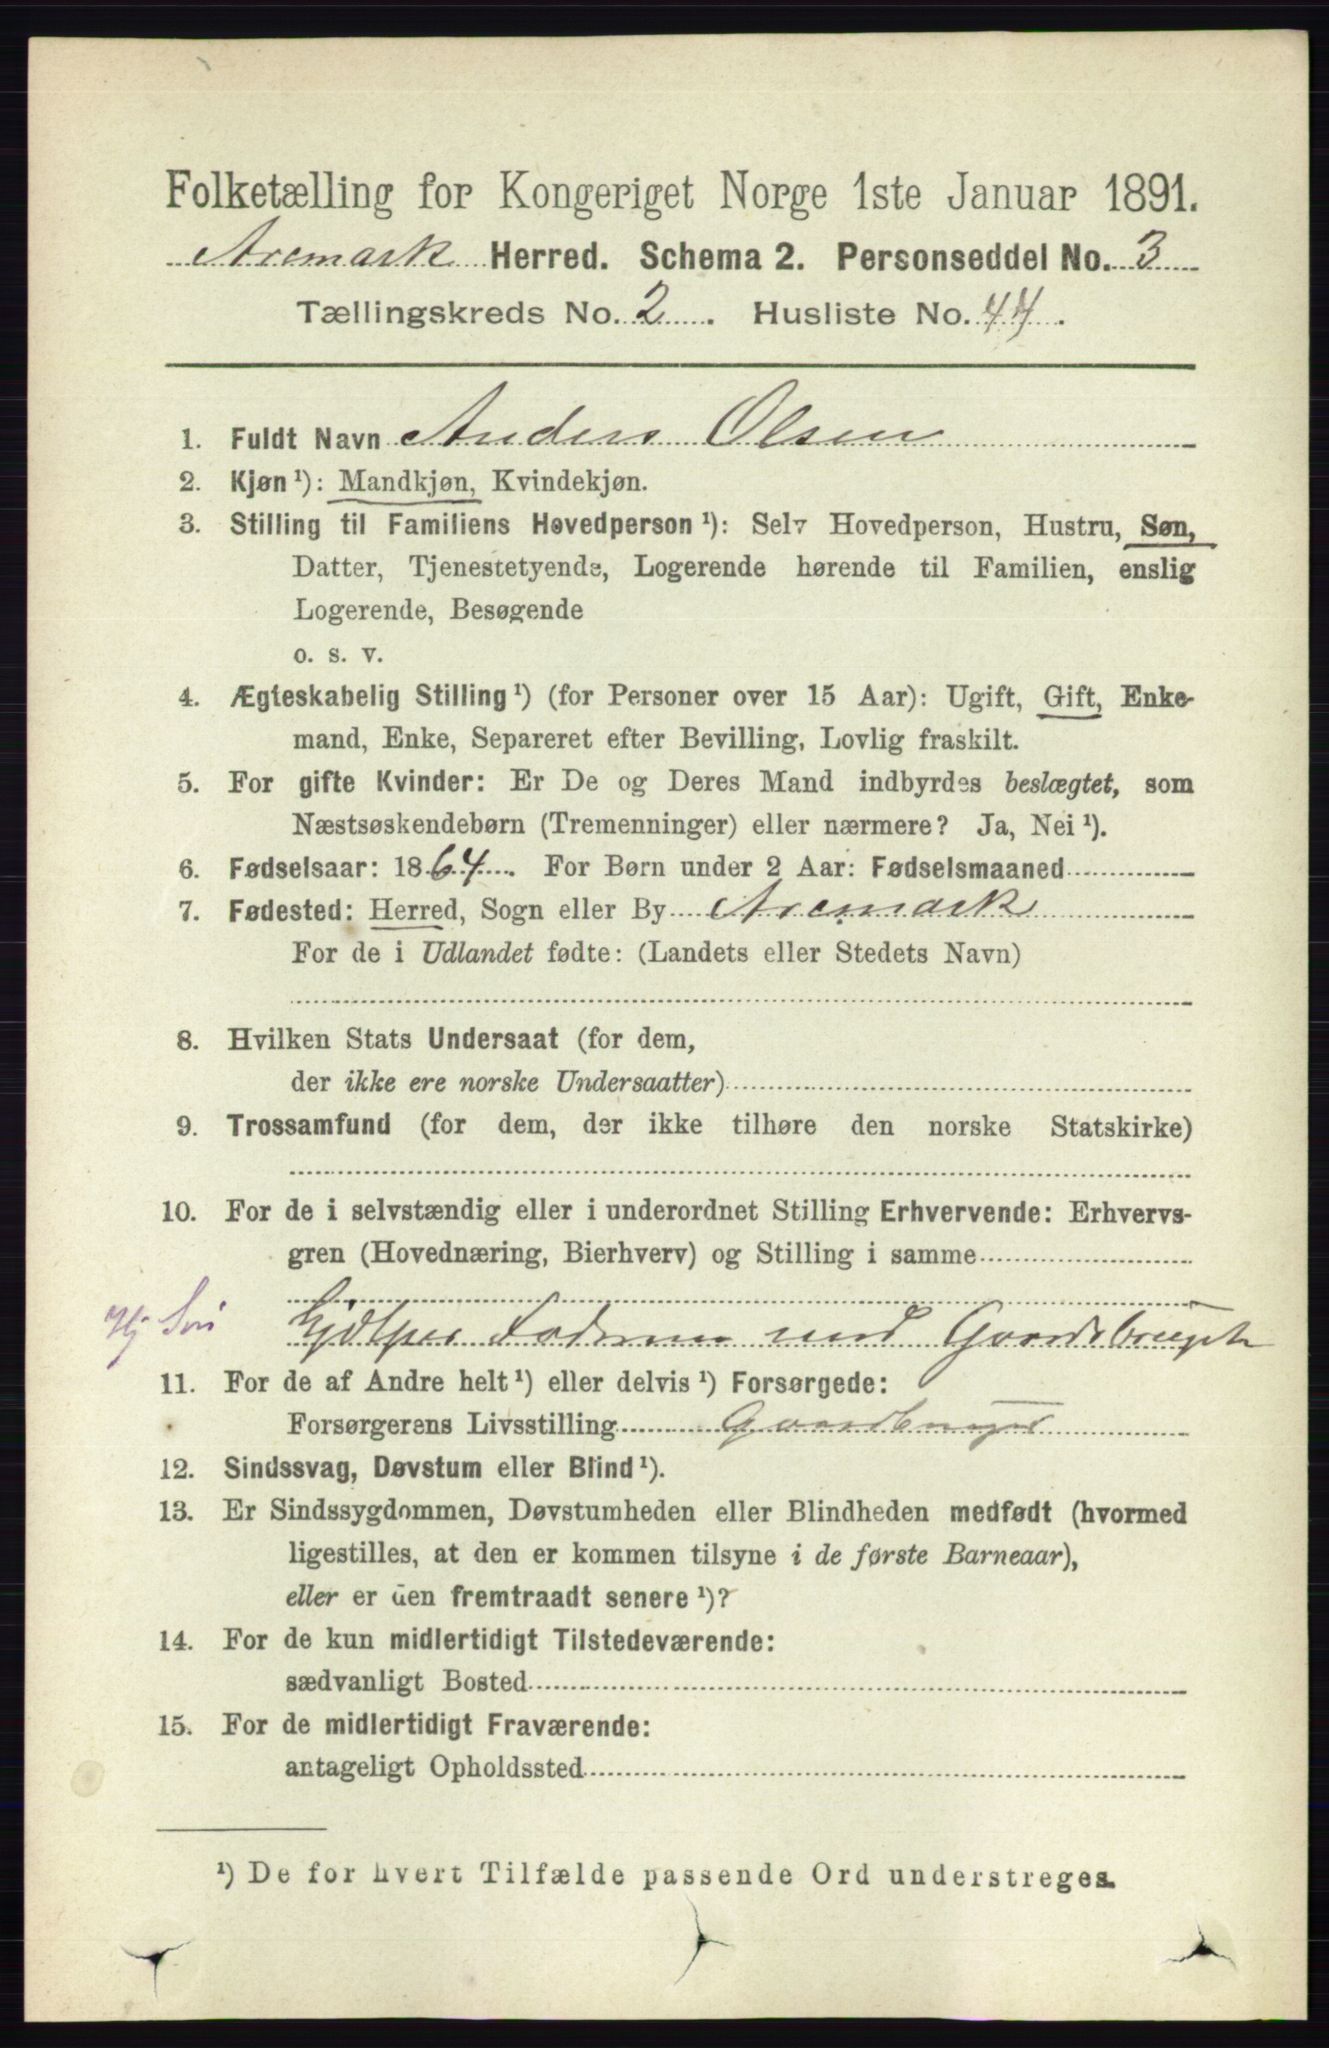 Folketælling for Kongeriget Norge 1ste Januar 1891.
Aremark Herred. Schema 2. Personseddel No. 3
Tællingskreds No. 2. Husliste No. 44.
1. Fuldt Navn Anders Olsen
2. Kjøn¹): Mandkjøn, Kvindekjøn.
3. Stilling til Familiens Hovedperson¹): Selv Hovedperson, Hustru, Søn,
Datter, Tjenestetyende, Logerende hørende til Familien, enslig
Logerende, Besøgende
o. s. v.
4. Ægteskabelig Stilling¹) (for Personer over 15 Aar): Ugift, Gift, Enke-
mand, Enke, Separeret efter Bevilling, Lovlig fraskilt.
5. For gifte Kvinder: Er De og Deres Mand indbyrdes beslægtet, som
Næstsøskendebørn (Tremenninger) eller nærmere? Ja, Nei¹).
6. Fødselsaar: 1864. For Børn under 2 Aar: Fødselsmaaned
7. Fødested: Herred, Sogn eller By Aremark
For de i Udlandet fødte: (Landets eller Stedets Navn)
8. Hvilken Stats Undersaat (for dem,
der ikke ere norske Undersaatter)
9. Trossamfund (for dem, der ikke tilhøre den norske Statskirke)
10. For de i selvstændig eller i underordnet Stilling Erhvervende: Erhvervs-
gren (Hovednæring, Bierhverv) og Stilling i samme
Hj Gjælper Faderen med Gaardsbruget
11. For de af Andre helt¹) eller delvis¹) Forsørgede:
Forsørgerens Livsstilling Gaardbruger
12. Sindssvag, Døvstum eller Blind¹).
13. Er Sindssygdommen, Døvstumheden eller Blindheden medfødt (hvormed
ligestilles, at den er kommen tilsyne i de første Barneaar),
eller er den fremtraadt senere¹)?
14. For de kun midlertidigt Tilstedeværende:
sædvanligt Bosted
15. For de midlertidigt Fraværende:
antageligt Opholdssted
¹) De for hvert Tilfælde passende Ord understreges.